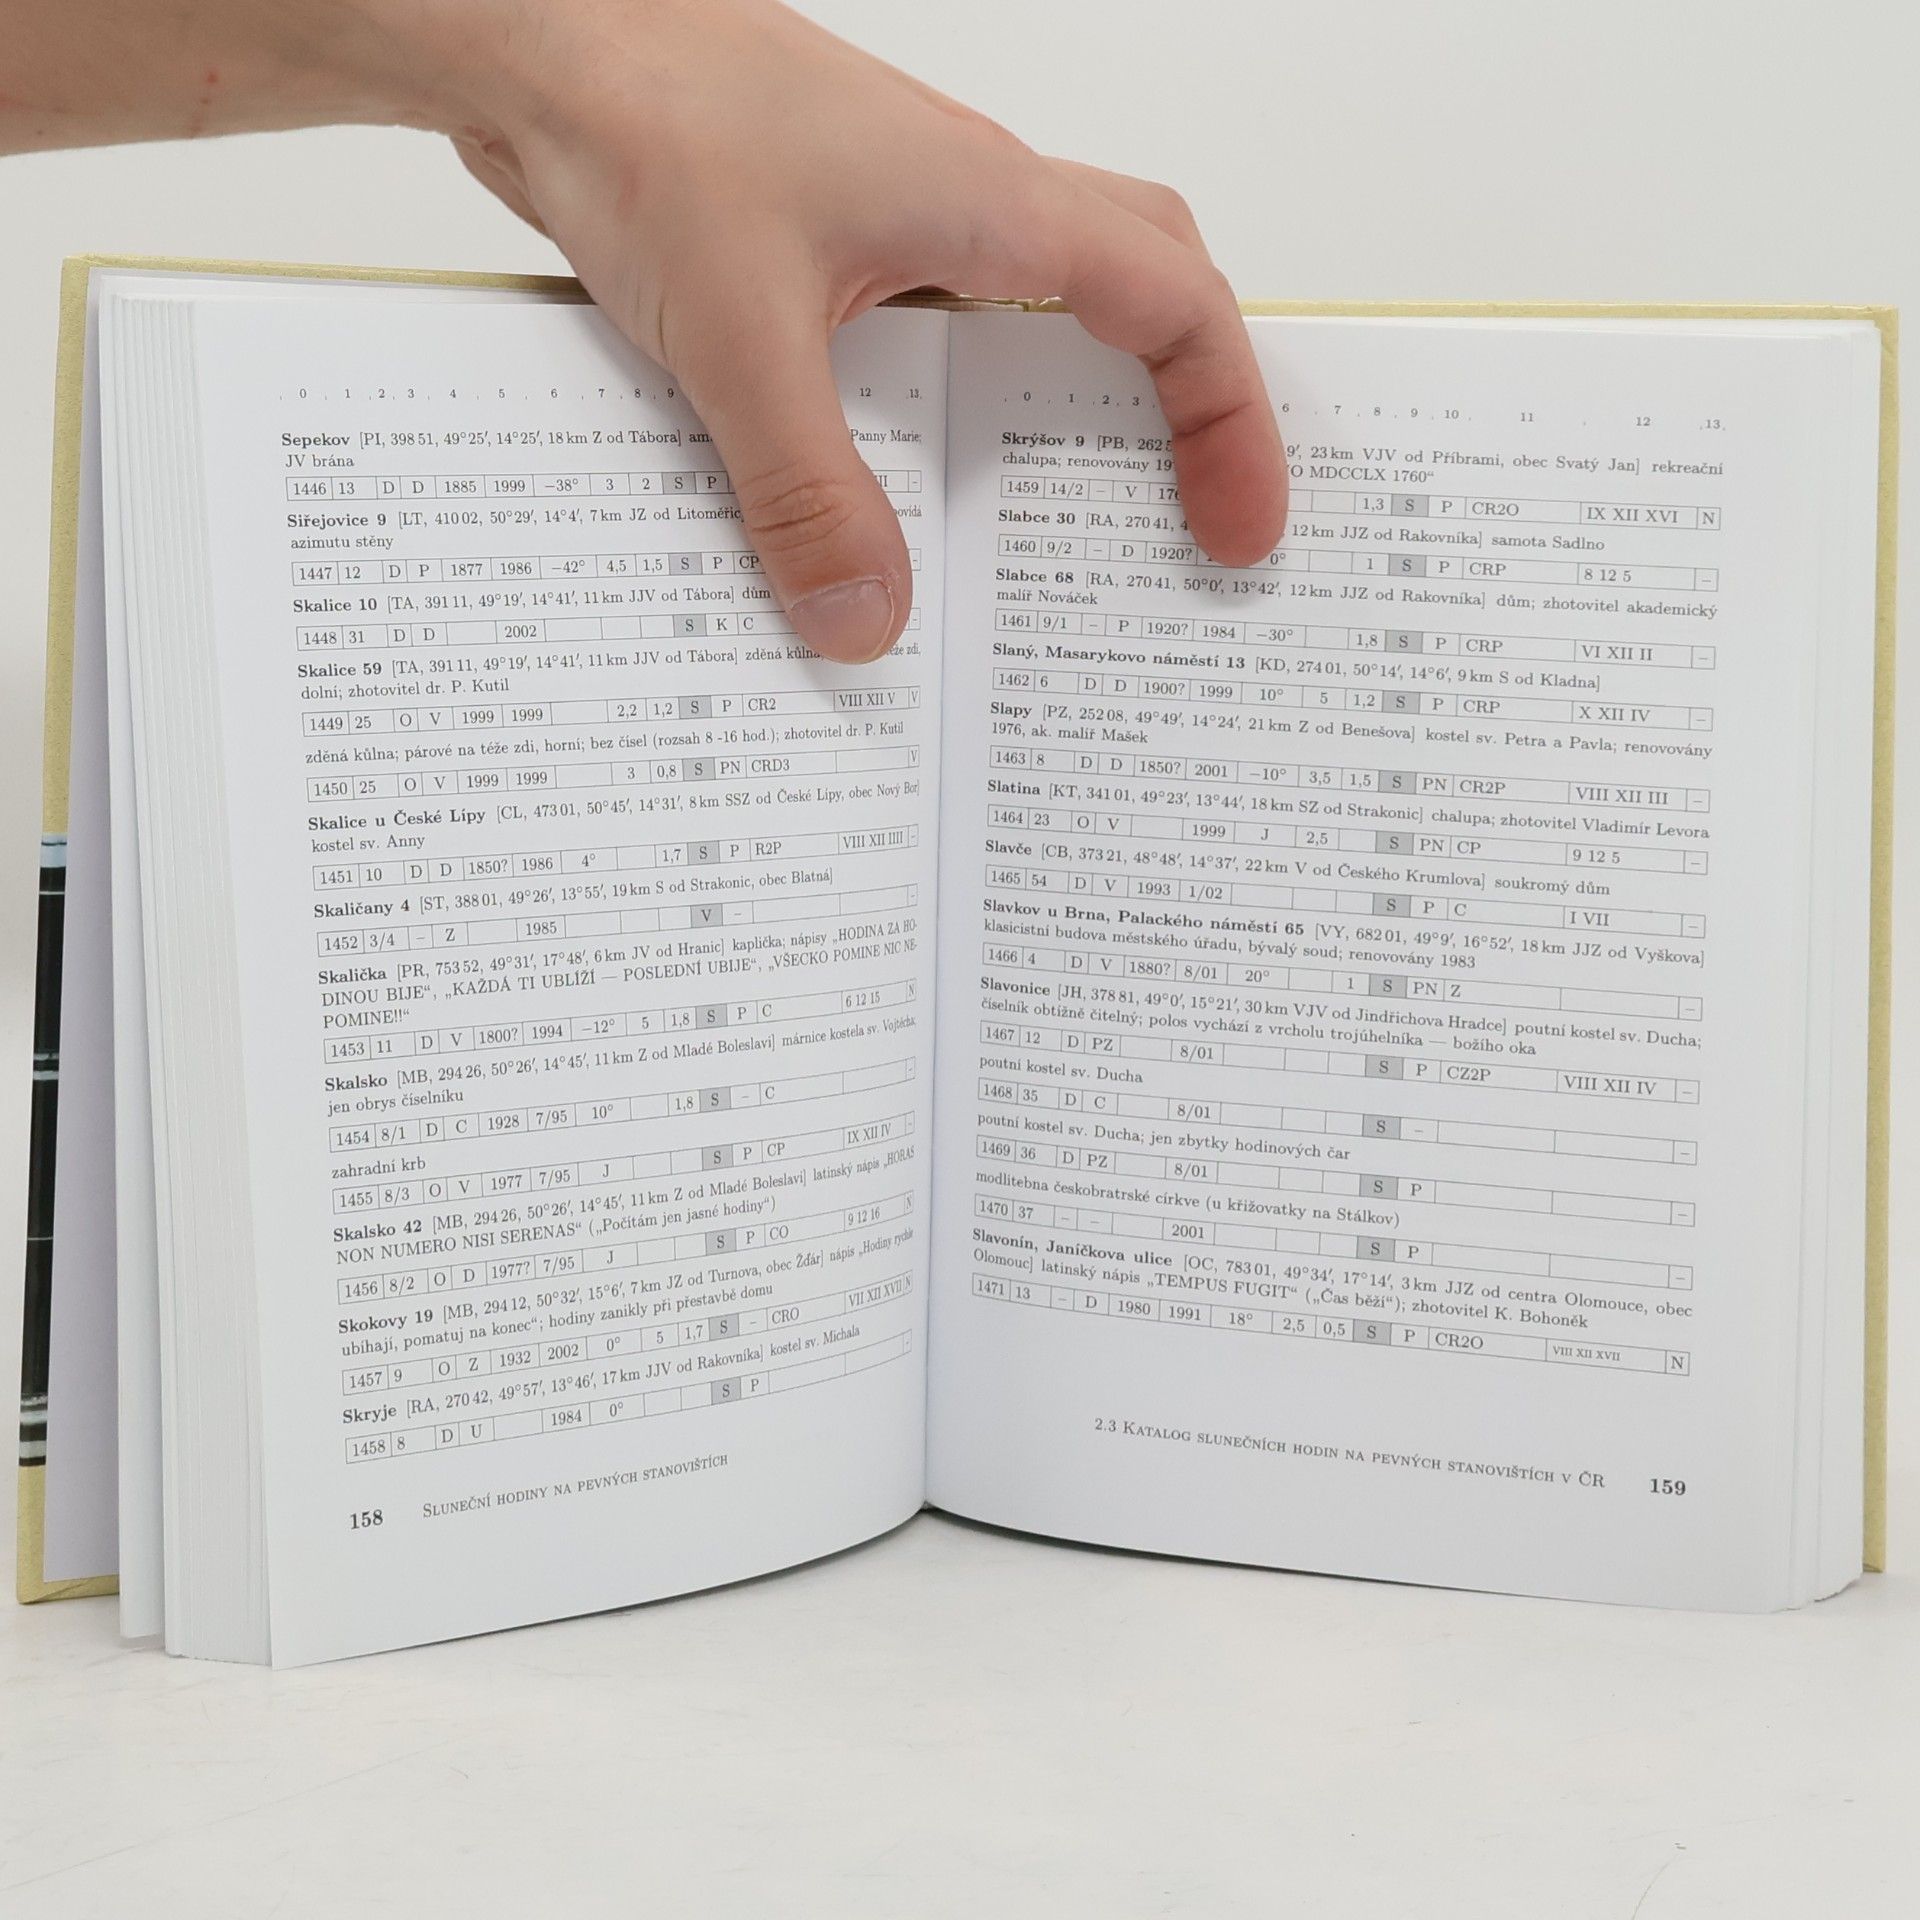 , 0 , 1 , 2 , 3 , 4 , 5 , 6 , 7 , 8 , 9 12 ,13,
Sepekov [PI, 398 51, 49°25′, 14°25′, 18 km Z od Tábora] Panny Marie;
JV brána
1446 13 D D 1885 1999 −38° 3 2 S P –
Siřejovice 9 [LT, 410 02, 50°29′, 14°4′, 7 km JZ od
azimutu stěny
1447 12 D P 1877 1986 −42° 4,5 1,5 S P –
Skalice 10 [TA, 391 11, 49°19′, 14°41′, 11 km JJV od Tábora] dům
1448 31 D D 2002 S K C –
Skalice 59 [TA, 391 11, 49°19′, 14°41′, 11 km JJV od Tábora] zděná kůlna; zdi,
dolní; zhotovitel dr. P. Kutil
1449 25 O V 1999 1999 2,2 1,2 S P CR2 VIII XII V V
zděná kůlna; párové na téže zdi, horní; bez čísel (rozsah 8 -16 hod.); zhotovitel dr. P. Kutil
1450 25 O V 1999 1999 3 0,8 S PN CRD3 V
Skalice u České Lípy [CL, 473 01, 50°45′, 14°31′, 8 km SSZ od České Lípy, obec Nový Bor]
kostel sv. Anny
1451 10 D D 1850? 1986 4° 1,7 S P R2P VIII XII IIII –
Skaličany 4 [ST, 388 01, 49°26′, 13°55′, 19 km S od Strakonic, obec Blatná]
1452 3/4 – Z 1985 V – –
Skalička [PR, 753 52, 49°31′, 17°48′, 6 km JV od Hranic] kaplička; nápisy „HODINA ZA HO-
DINOU BIJE“, „KAŽDÁ TI UBLÍŽÍ — POSLEDNÍ UBIJE“, „VŠECKO POMINE NIC NE-
POMINE!!“
1453 11 D V 1800? 1994 −12° 5 1,8 S P C 6 12 15 N
Skalsko [MB, 294 26, 50°26′, 14°45′, 11 km Z od Mladé Boleslavi] márnice kostela sv. Vojtěcha;
jen obrys číselníku
1454 8/1 D C 1928 7/95 10° 1,8 S – C –
zahradní krb
1455 8/3 O V 1977 7/95 J S P CP IX XII IV –
Skalsko 42 [MB, 294 26, 50°26′, 14°45′, 11 km Z od Mladé Boleslavi] latinský nápis „HORAS
NON NUMERO NISI SERENAS“ („Počítám jen jasné hodiny“)
1456 8/2 O D 1977? 7/95 J S P CO 9 12 16 N
Skokovy 19 [MB, 294 12, 50°32′, 15°6′, 7 km JZ od Turnova, obec Žďár] nápis „Hodiny rychle
ubíhají, pomatuj na konec“; hodiny zanikly při přestavbě domu
1457 9 O Z 1932 2002 0° 5 1,7 S – CRO VII XII XVII N
Skryje [RA, 270 42, 49°57′, 13°46′, 17 km JJV od Rakovníka] kostel sv. Michala
1458 8 D U 1984 0° S P –
158 Sluneční hodiny na pevných stanovištích
, 0 , 1 , 2 , 3 , 6 , 7 , 8 , 9 , 10 , 11 , 12 ,13,
Skrýšov 9 [PB, 9′, 23 km VJV od Příbrami, obec Svatý Jan] rekreační
chalupa; renovovány MDCCLX 1760“
1459 14/2 – V 1,3 S P CR2O IX XII XVI N
Slabce 30 [RA, 270 41, 12 km JJZ od Rakovníka] samota Sadlno
1460 9/2 – D 1920? 0° 1 S P CRP 8 12 5 –
Slabce 68 [RA, 270 41, 50°0′, 13°42′, 12 km JJZ od Rakovníka] dům; zhotovitel akademický
malíř Nováček
1461 9/1 – P 1920? 1984 −30° 1,8 S P CRP VI XII II –
Slaný, Masarykovo náměstí 13 [KD, 274 01, 50°14′, 14°6′, 9 km S od Kladna]
1462 6 D D 1900? 1999 10° 5 1,2 S P CRP X XII IV –
Slapy [PZ, 252 08, 49°49′, 14°24′, 21 km Z od Benešova] kostel sv. Petra a Pavla; renovovány
1976, ak. malíř Mašek
1463 8 D D 1850? 2001 −10° 3,5 1,5 S PN CR2P VIII XII III –
Slatina [KT, 341 01, 49°23′, 13°44′, 18 km SZ od Strakonic] chalupa; zhotovitel Vladimír Levora
1464 23 O V 1999 J 2,5 S PN CP 9 12 5 –
Slavče [CB, 373 21, 48°48′, 14°37′, 22 km V od Českého Krumlova] soukromý dům
1465 54 D V 1993 1/02 S P C I VII –
Slavkov u Brna, Palackého náměstí 65 [VY, 682 01, 49°9′, 16°52′, 18 km JJZ od Vyškova]
klasicistní budova městského úřadu, bývalý soud; renovovány 1983
1466 4 D V 1880? 8/01 20° 1 S PN Z –
Slavonice [JH, 378 81, 49°0′, 15°21′, 30 km VJV od Jindřichova Hradce] poutní kostel sv. Ducha;
číselník obtížně čitelný; polos vychází z vrcholu trojúhelníka — božího oka
1467 12 D PZ 8/01 S P CZ2P VIII XII IV –
poutní kostel sv. Ducha
1468 35 D C 8/01 S – –
poutní kostel sv. Ducha; jen zbytky hodinových čar
1469 36 D PZ 8/01 S P –
modlitebna českobratrské církve (u křižovatky na Stálkov)
1470 37 – – 2001 S P –
Slavonín, Janíčkova ulice [OC, 783 01, 49°34′, 17°14′, 3 km JJZ od centra Olomouce, obec
Olomouc] latinský nápis „TEMPUS FUGIT“ („Čas běží“); zhotovitel K. Bohoněk
1471 13 – D 1980 1991 18° 2,5 0,5 S P CR2O VIII XII XVII N
2.3 Katalog slunečních hodin na pevných stanovištích v ČR 159